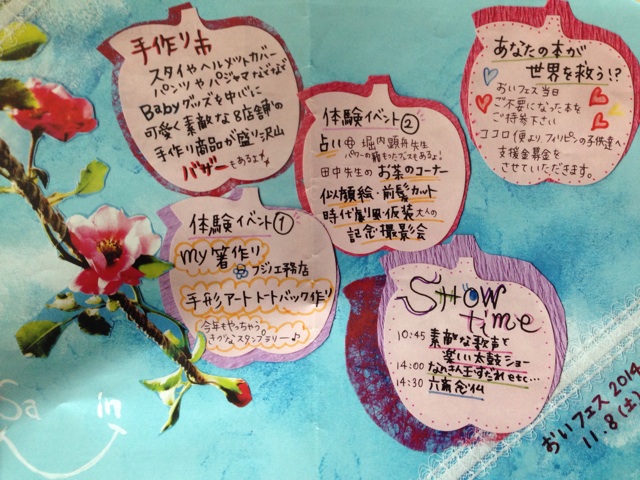 手作り市
スタイやヘルメットカバー
パンツやパジャマなどなど
Babyグッズを中心に
可愛く素敵な8店舗の
手作り商品が盛り沢山
バザーもあるよ♪
体験イベント②
占い 堀内顕舟先生
パワーの籠もったブースもあるよ!
田中先生のお茶のコーナー
似顔絵・前髪カット
時代劇風・仮装大人の
記念撮影会
あなたの本が
世界を救う!?
おいフェス当日
ご不要になった本を
ご持参下さい
ココロ便より、フィリピンの子供達へ
支援金募金を
させていただきます。
体験イベント①
my箸作り
フジノ工務店
手形アートトートバック作り
今年もやっちゃう。
きづなスタンプラリー♪
SHOW
time
10:45 素敵な歌声と
楽しい太鼓ショー
14:00 なんきん玉すだれetc…
14:30 六斎念仏
Sa in
おいフェス2014
11.8(土)